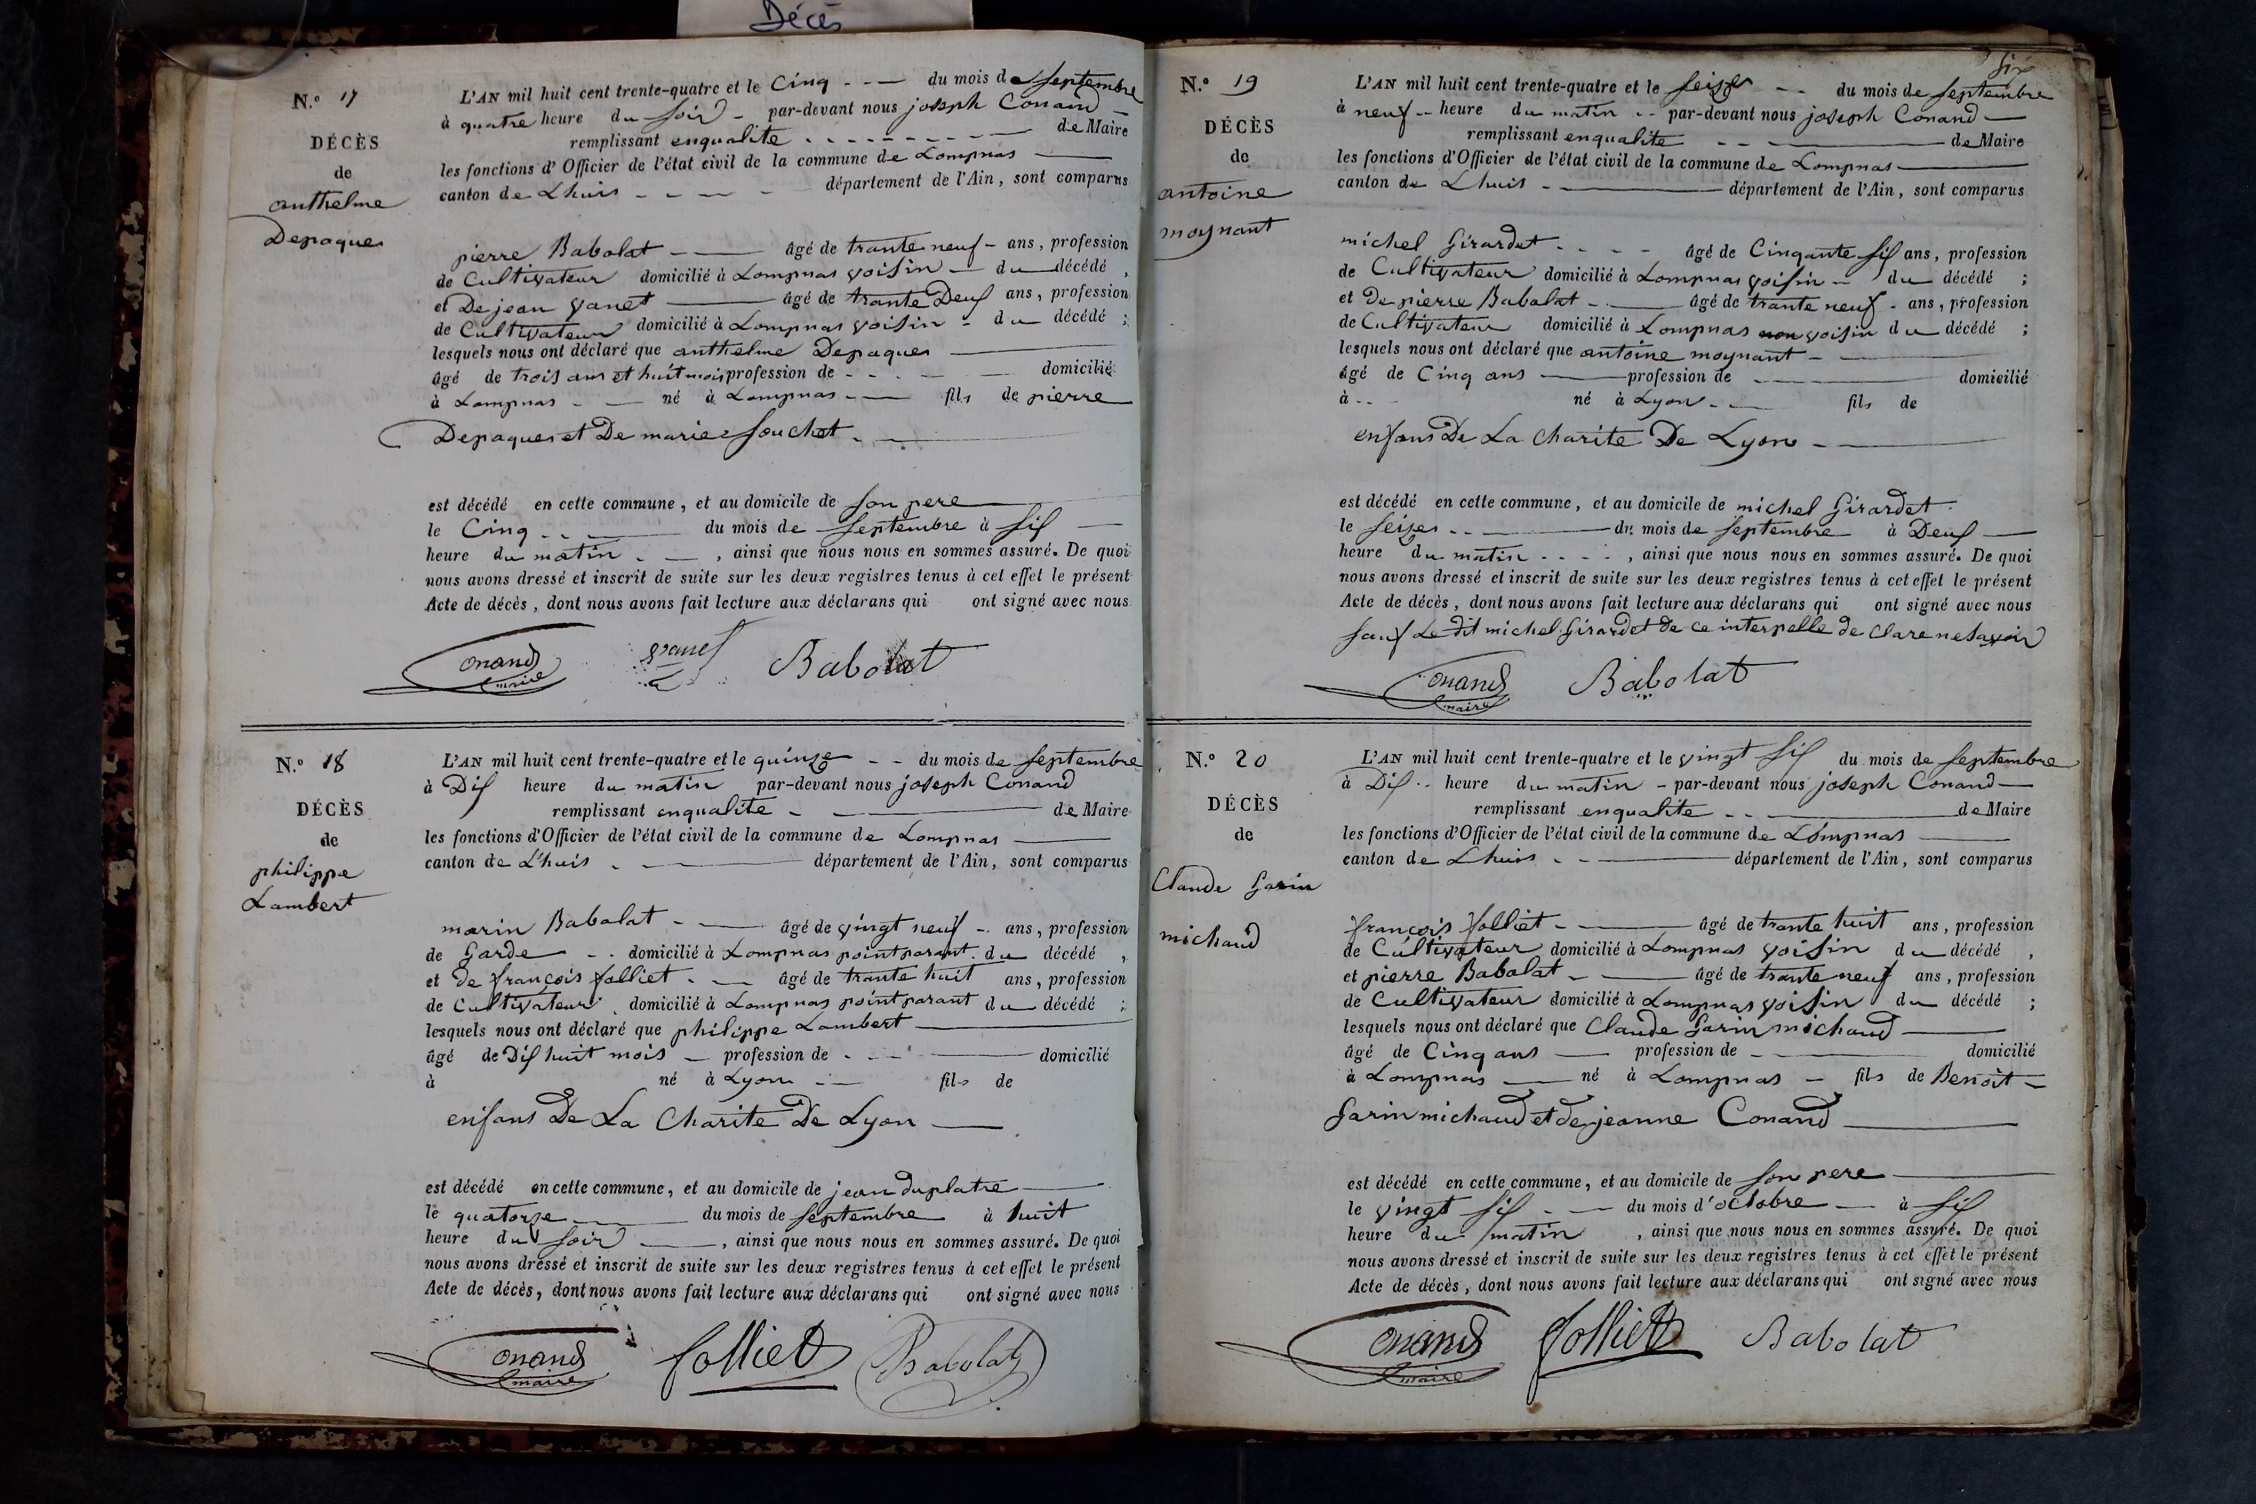 Décès
N.° 17
DÉCÈS
de
anthelme
Depaques
L'AN mil huit cent trente-quatre et le Cinq - - — du mois de septembre
à quatre heure du soir - par-devant nous joseph Conand —
remplissant enqualite - - - - - - - - — de Maire
les fonctions d'Officier de l'état civil de la commune de Lompnas —
canton de Lhuis - - — - département de l'Ain, sont comparus
pierre Babolat - — âgé de trante neuf - ans, profession
de Cultivateur domicilié à Lompnas voisin — du décédé ,
et De jean vanet — âgé de trante Deus ans, profession
de Cultivateur domicilié à Lompnas voisin - du décédé ;
lesquels nous ont déclaré que anthelme Depaques —
âgé de trois ans et huit mois profession de - - - — domicilié
à Lompnas - — né à Lompnas - — fils de pierre
Depaques et De marie souchet - —
est décédé en cette commune, et au domicile de son pere —
le Cinq - - — du mois de septembre à sis —
heure du matin - — , ainsi que nous nous en sommes assuré. De quoi
nous avons dressé et inscrit de suite sur les deux registres tenus à cet effet le présent
Acte de décès, dont nous avons fait lecture aux déclarans qui ont signé avec nous
Conand maire vanet Babolat
N.° 18
DÉCÈS
de
philippe
Lambert
L'AN mil huit cent trente-quatre et le quinze - - du mois de septembre
à Dis heure du matin par-devant nous joseph Conand
remplissant enqualite - — de Maire
les fonctions d'Officier de l'état civil de la commune de Lompnas —
canton de L'huis - — département de l'Ain, sont comparus
marin Babolat - — âgé de vingt neuf - ans, profession
de Garde - - domicilié à Lompnas point parant du décédé ,
et de françois folliet - — âgé de trante huit ans, profession
de Cultivateur domicilié à Lompnas point parant du décédé ;
lesquels nous ont déclaré que philippe Lambert —
âgé de Dis huit mois — profession de - - - — domicilié
à né à Lyon - — fils de
enfans De La Charite De Lyon —
est décédé en cette commune, et au domicile de jean duplatre —
le quatorze — du mois de septembre à huit
heure du soir — , ainsi que nous nous en sommes assuré. De quoi
nous avons dressé et inscrit de suite sur les deux registres tenus à cet effet le présent
Acte de décès, dont nous avons fait lecture aux déclarans qui ont signé avec nous
Conand maire folliet Babolat
six
N.° 19
DÉCÈS
de
antoine
moynant
L'AN mil huit cent trente-quatre et le seize - - du mois de septembre
à neuf - - heure du matin - - par-devant nous joseph Conand —
remplissant enqualite - - — de Maire
les fonctions d'Officier de l'état civil de la commune de Lompnas —
canton de Lhuis - — département de l'Ain, sont comparus
michel Girardet - - - - âgé de Cinqante sis ans, profession
de Cultivateur domicilié à Lompnas voisin - du décédé ;
et De pierre Babolat - — âgé de trante neuf - ans, profession
de Cultivateur domicilié à Lompnas non voisin du décédé ;
lesquels nous ont déclaré que antoine moynant - —
âgé de Cinq ans — profession de — domicilié
à - - né à Lyon - — fils de
enfans De La Charite De Lyon - —
est décédé en cette commune, et au domicile de michel Girardet -
le seize - - — du mois de septembre à Deus —
heure du matin - - - - , ainsi que nous nous en sommes assuré. De quoi
nous avons dressé et inscrit de suite sur les deux registres tenus à cet effet le présent
Acte de décès, dont nous avons fait lecture aux déclarans qui ont signé avec nous
sauf Le dit michel Girardet de ce interpelle de clare ne savoir
Conand maire Babolat
N.° 20
DÉCÈS
de
Claude Garin
michaud
L'AN mil huit cent trente-quatre et le vingt sis du mois de septembre
à Dis - - heure du matin - par-devant nous joseph Conand —
remplissant enqualite - - — de Maire
les fonctions d'Officier de l'état civil de la commune de Lompnas —
canton de Lhuis - - — département de l'Ain, sont comparus
françois folliet - — âgé de trante huit ans, profession
de Cultivateur domicilié à Lompnas voisin du décédé ,
et pierre Babolat - — âgé de trante neuf ans, profession
de Cultivateur domicilié à Lompnas voisin du décédé ;
lesquels nous ont déclaré que Claude Garin michaud —
âgé de Cinq ans — profession de - — domicilié
à Lompnas — né à Lompnas - fils de Benoit —
Garin michaud et de jeanne Conand —
est décédé en cette commune, et au domicile de son pere —
le vingt sis - — du mois d'octobre — à sis
heure du matin , ainsi que nous nous en sommes assuré. De quoi
nous avons dressé et inscrit de suite sur les deux registres tenus à cet effet le présent
Acte de décès, dont nous avons fait lecture aux déclarans qui ont signé avec nous
Conand maire folliet Babolat